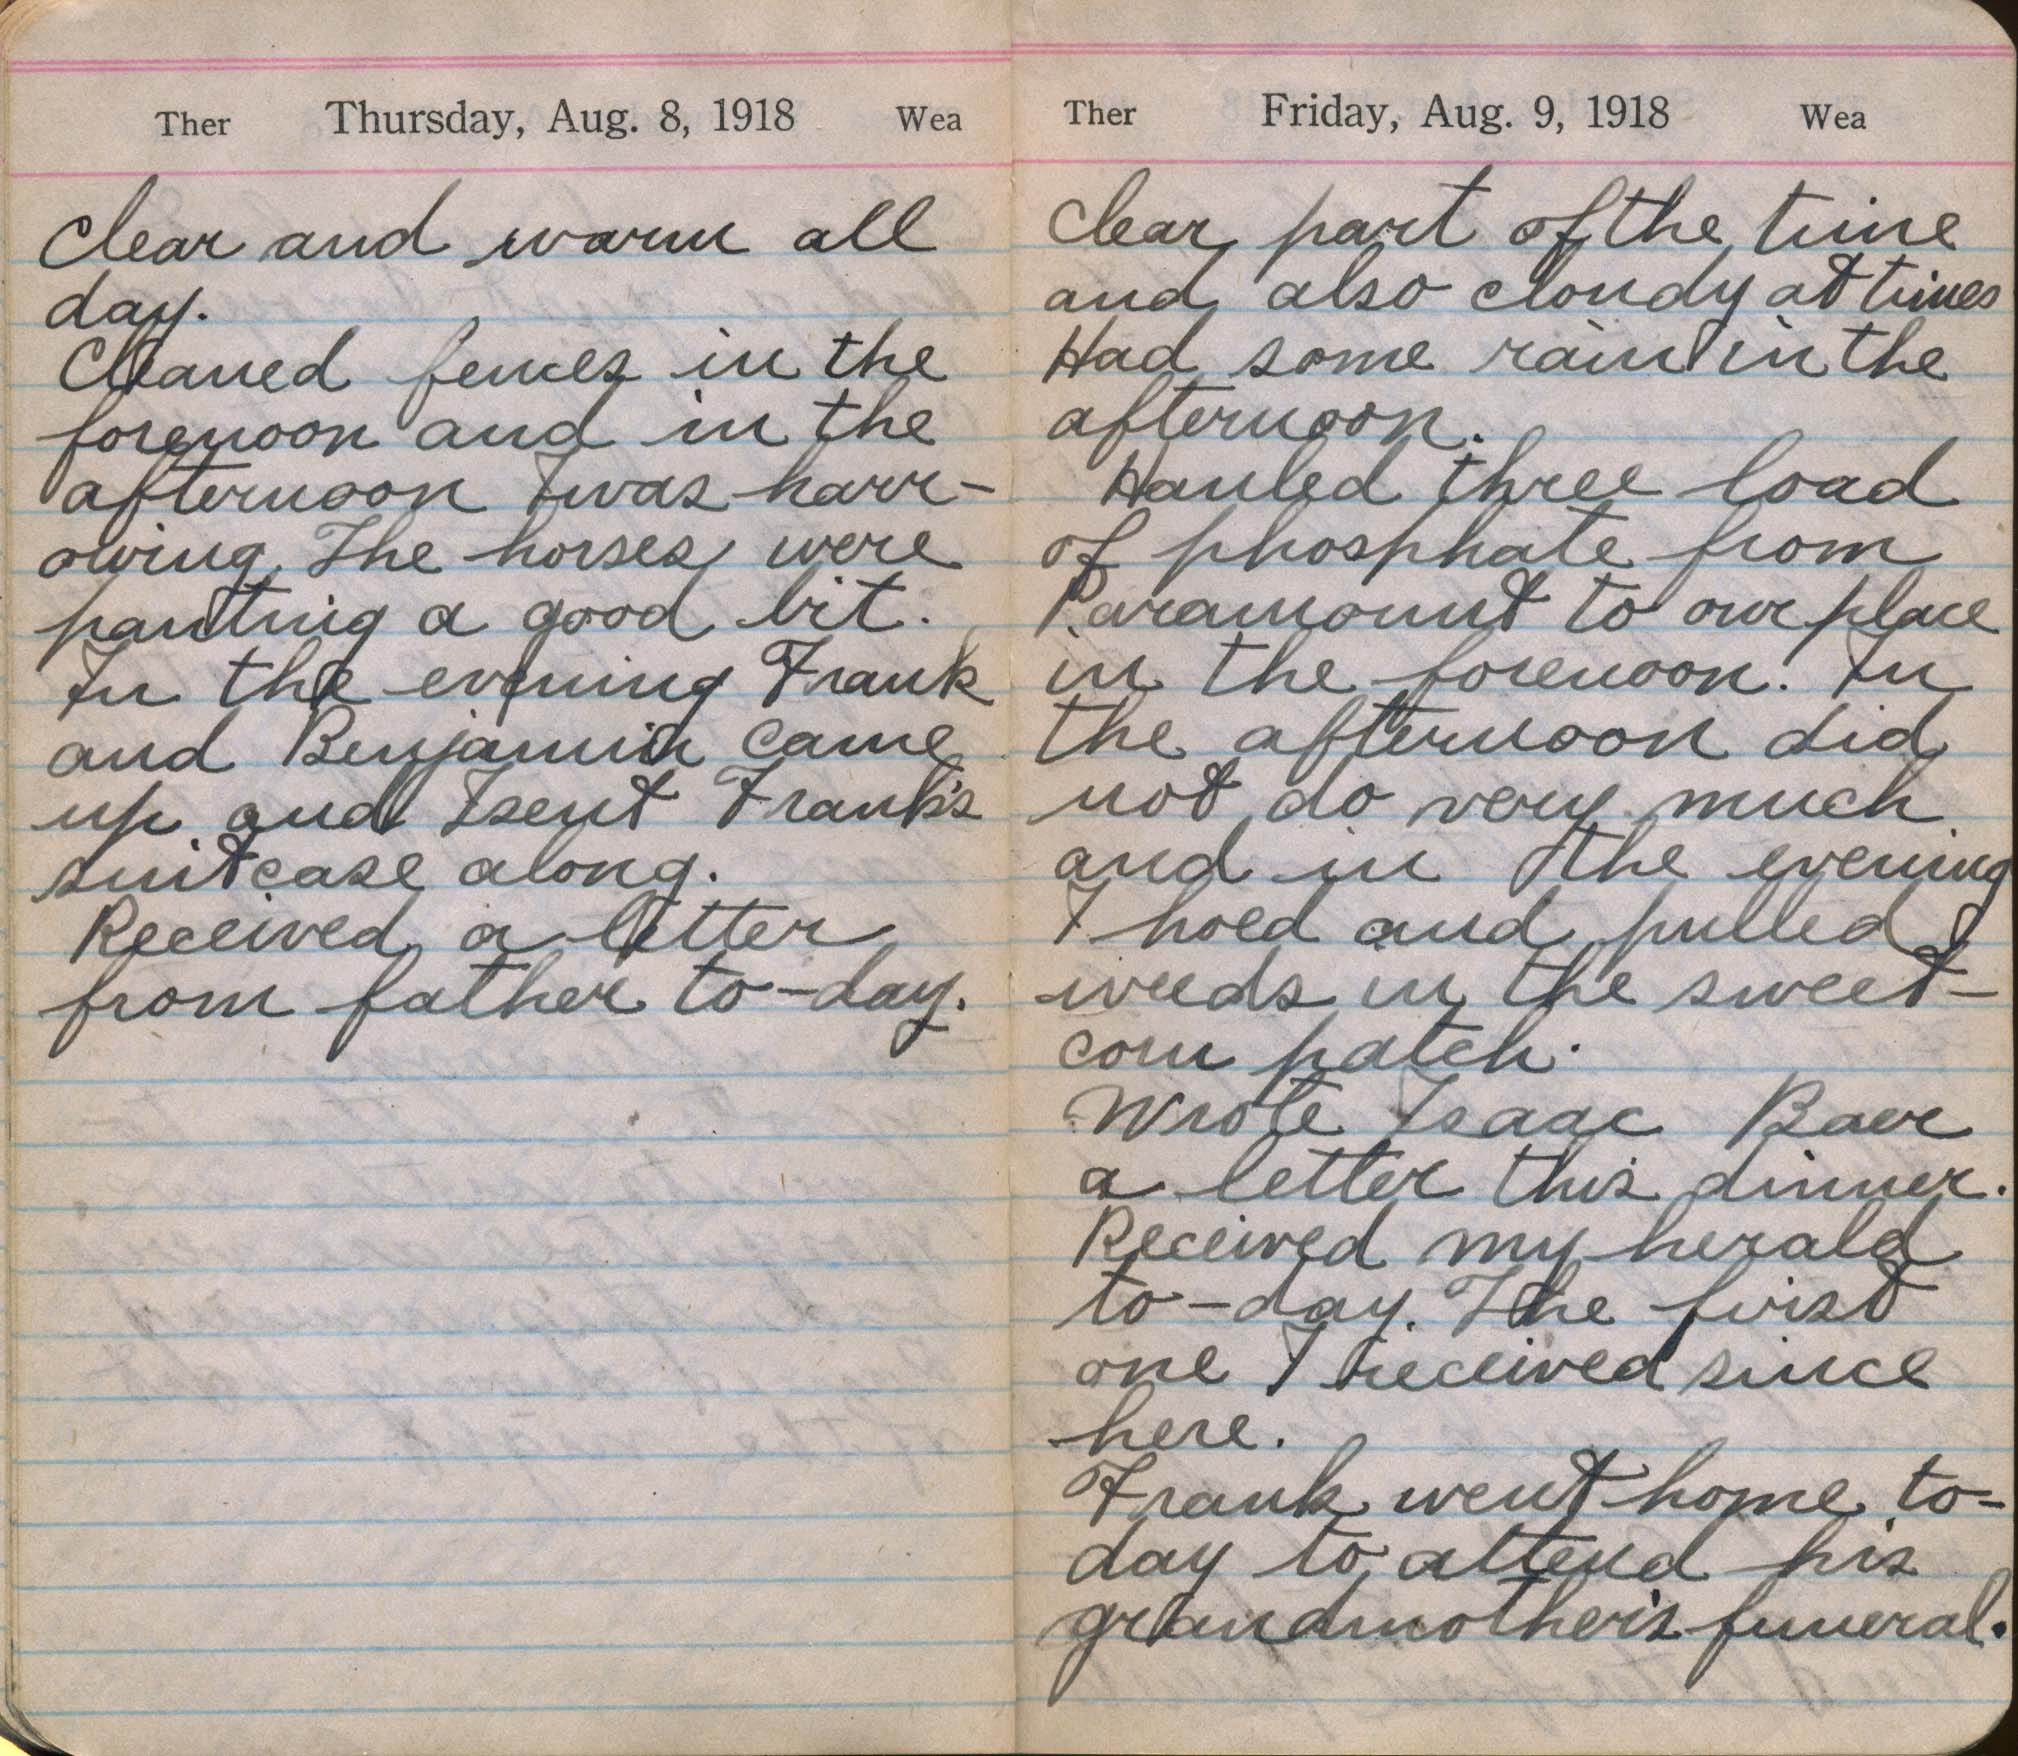 Ther Thursday, Aug. 8, 1918 Wea
Clear and warm all
day.
Cleaned fences in the
forenoon and in the
afternoon I was harr-
owing. The horses were
panting a good bit.
In the evening Frank
and Benjamin came
up and I sent Frank's
suitcase along.
Received a letter
from father to-day.
Ther Friday, Aug. 9, 1918 Wea
Clear part of the time
and also cloudy at times
Had some rain in the
afternoon.
Hauled three load
of phosphate from
Paramount to our place
in the forenoon. In
the afternoon did
not do very much
and in the evening
I hoed and pulled
weeds in the sweet-
corn patch.
Wrote Isaac Baer
a letter this dinner.
Received my herald
to-day. The first
one I received since
here.
Frank went home to-
day to attend his
grandmother's funeral.